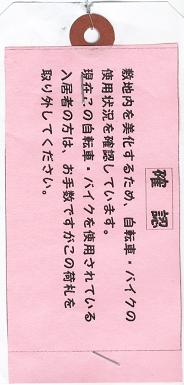 確認
敷地内を美化するため、自転車・バイクの
使用状況を確認しています。
現在この自転車・バイクを使用されている
入居者の方は、お手数ですがこの荷札を
取り外してください。